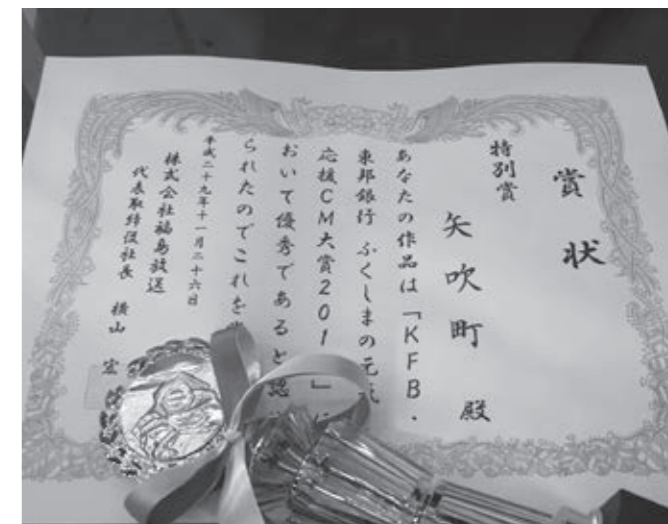 賞状
特別賞
矢吹町 殿
あなたの作品は「KFB・
東邦銀行 ふくしまの元気
応援CM大賞201 」に
おいて優秀であると認め
られたのでこれを
平成二十九年十一月二十六日
株式会社福島放送
代表取締役社長 横山 宏